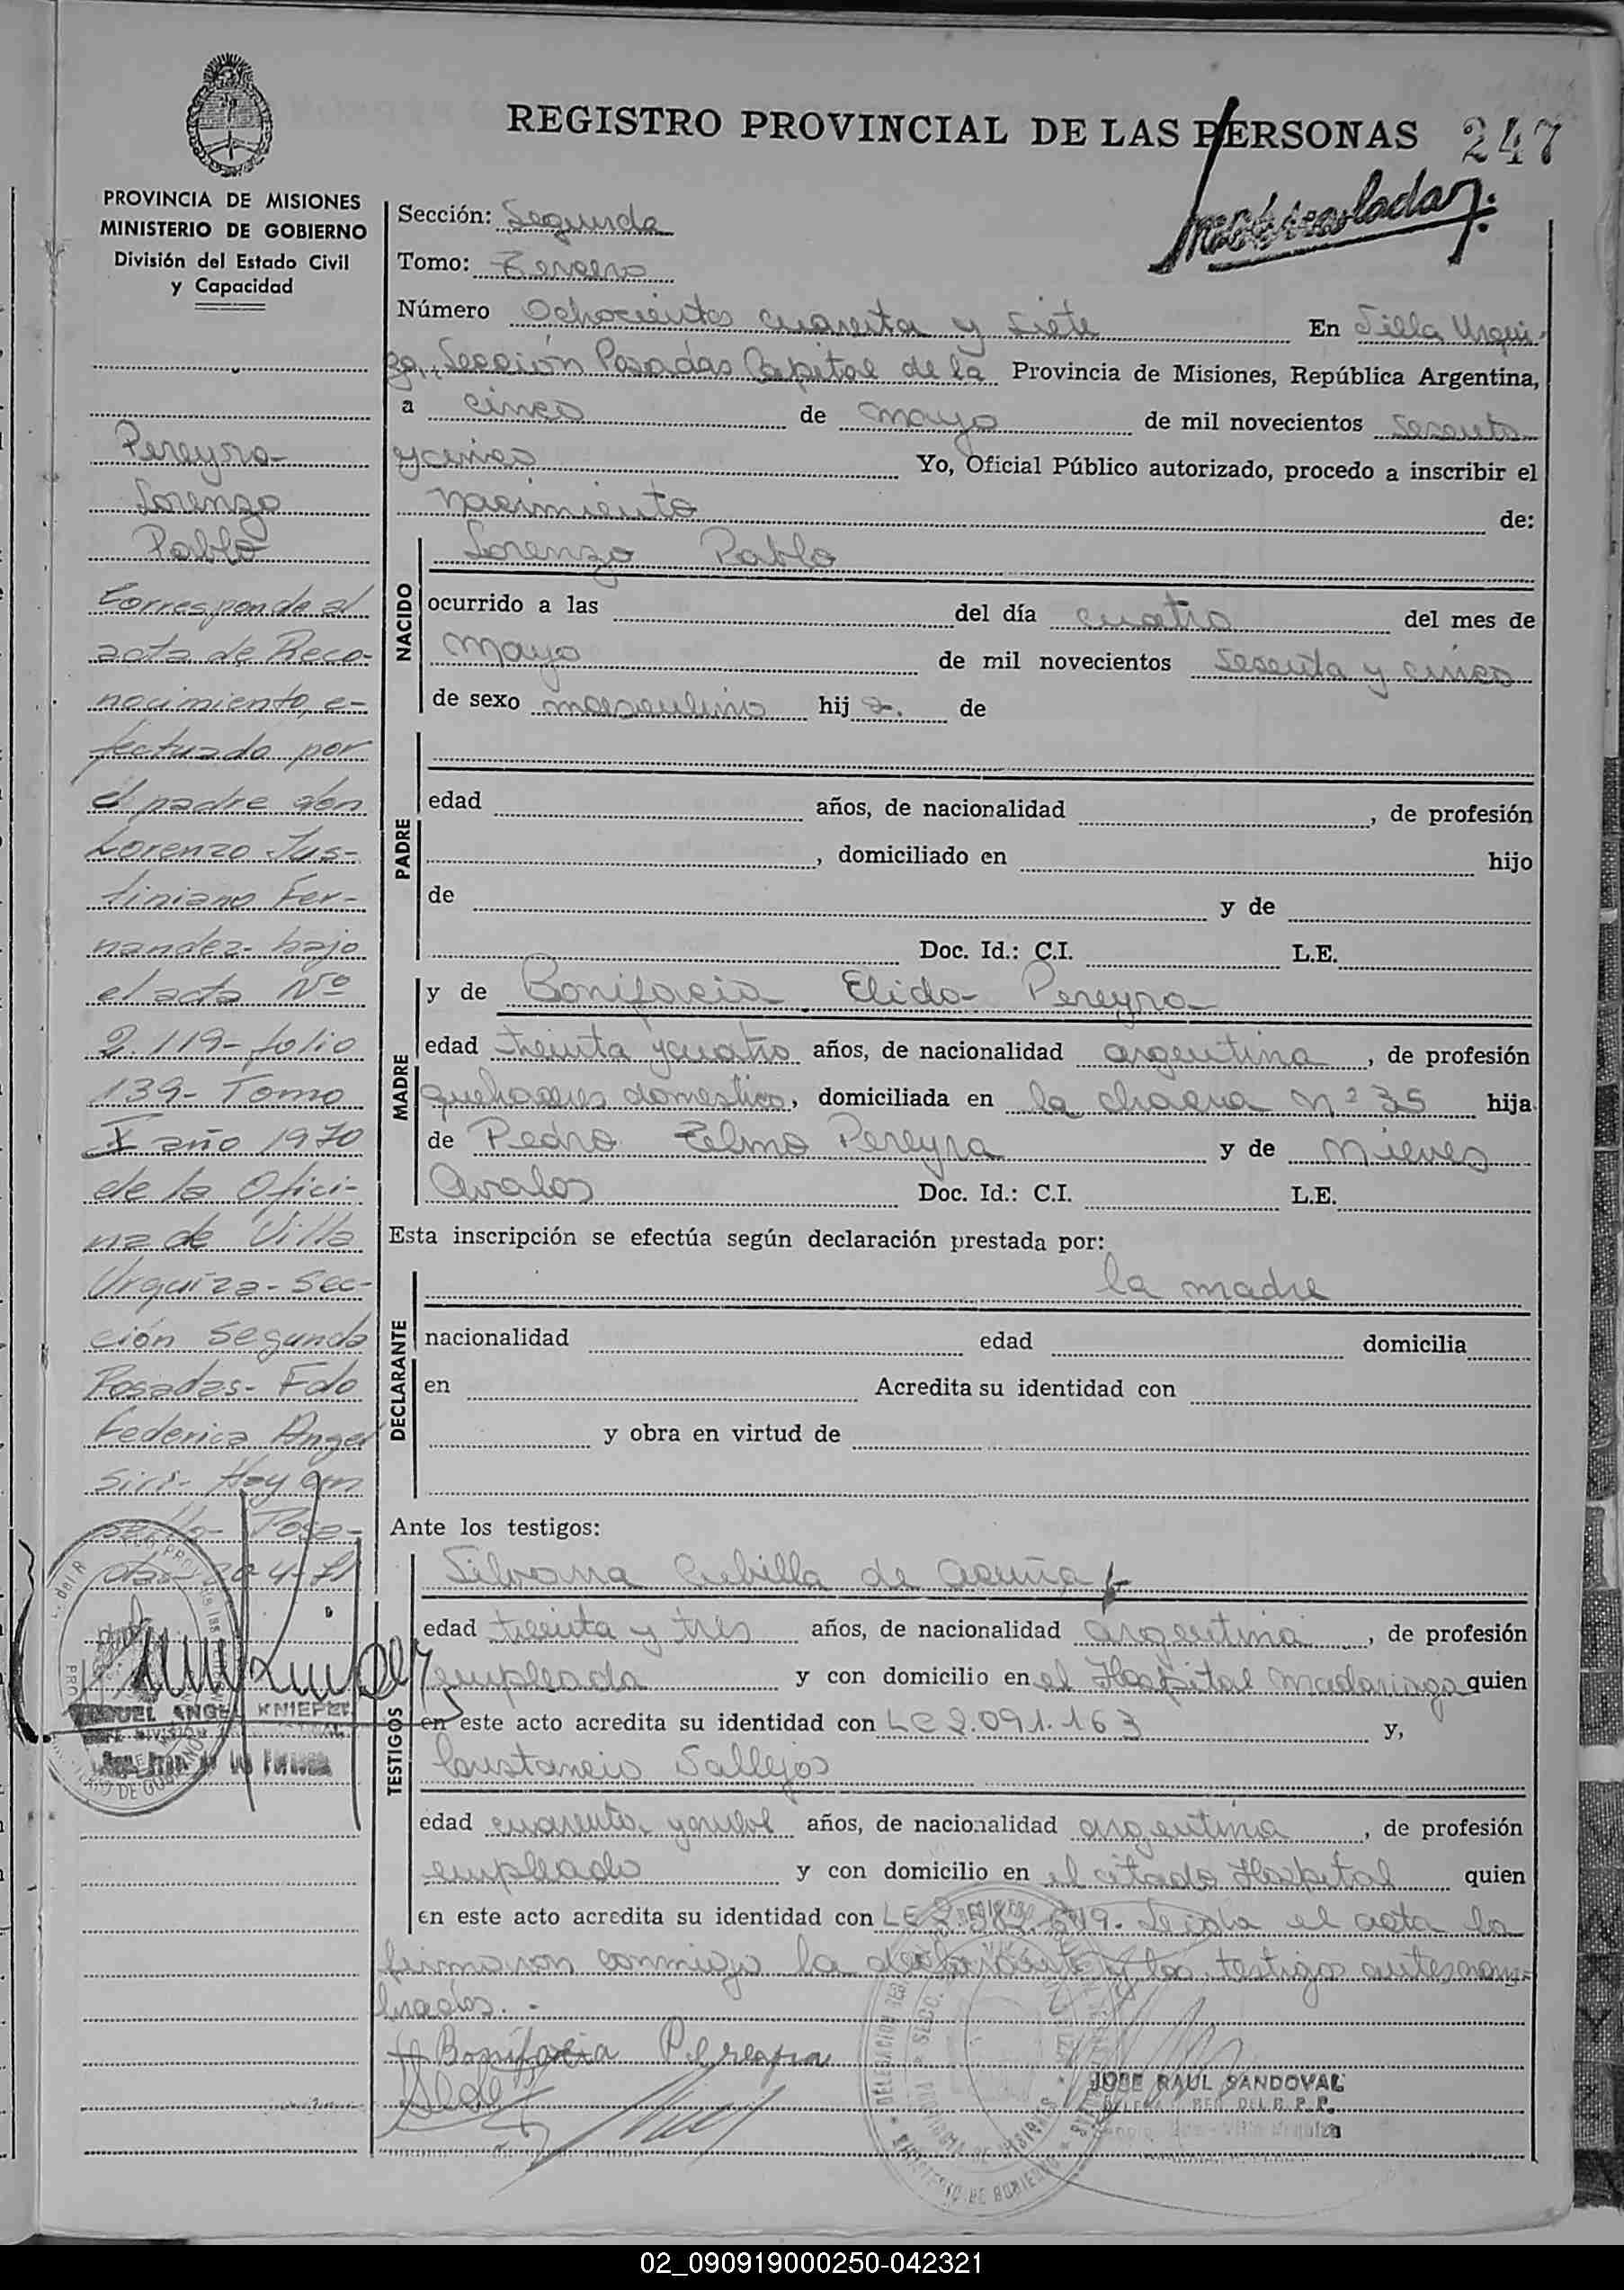 REGISTRO PROVINCIAL DE LAS PERSONAS 247
PROVINCIA DE MISIONES
MINISTERIO DE GOBIERNO
División del Estado Civil
y Capacidad
Pereyra
Lorenzo
Pablo
Corresponde al
acta de Reco-
nocimiento, e-
fectuado por
el padre don
Lorenzo Jus-
tiniano Fer-
nandez- bajo
el acta Nº
2.119- folio
139- Tomo
X año 1970
de la Ofici-
na de Villa
Urquiza- Sec-
ción Segunda
Posadas- Fdo
Federico Angel
Siri- Hay un
sello- Posa-
das
MIGUEL ANGEL KNIEPER
JEFE DIVISION
Sección: Segunda
Tomo: Tercero
Número Ochocientos cuarenta y siete En Villa Urqui-
za, Sección Posadas Capital de la Provincia de Misiones, República Argentina,
a cinco de mayo de mil novecientos sesenta
y cinco Yo, Oficial Público autorizado, procedo a inscribir el
nacimiento de:
NACIDO
Lorenzo Pablo
ocurrido a las del día cuatro del mes de
mayo de mil novecientos sesenta y cinco
de sexo masculino hij o. de
PADRE
edad años, de nacionalidad , de profesión
, domiciliado en hijo
de y de
Doc. Id.: C.I. L.E.
MADRE
y de Bonifacia Elida Pereyra
edad treinta y cuatro años, de nacionalidad argentina , de profesión
quehaceres domestico, domiciliada en la chacra nº 35 hija
de Pedro Telmo Pereyra y de Nieves
Avalos Doc. Id.: C.I. L.E.
Esta inscripción se efectúa según declaración prestada por:
DECLARANTE
la madre
nacionalidad edad domicilia
en Acredita su identidad con
y obra en virtud de
Ante los testigos:
TESTIGOS
Silvana Cubilla de Acuña
edad treinta y tres años, de nacionalidad argentina , de profesión
empleada y con domicilio en el Hospital Madariaga quien
en este acto acredita su identidad con LC 2.091.163 y,
Constancio Vallejos
edad cuarenta años, de nacionalidad argentina , de profesión
empleado y con domicilio en el citado Hospital quien
en este acto acredita su identidad con LE Leida el acta la
firmaron conmigo la declarante y los testigos antesnom-
brados. -
Bonifacia Pereyra
JOSE RAUL SANDOVAL
02_090919000250-042321